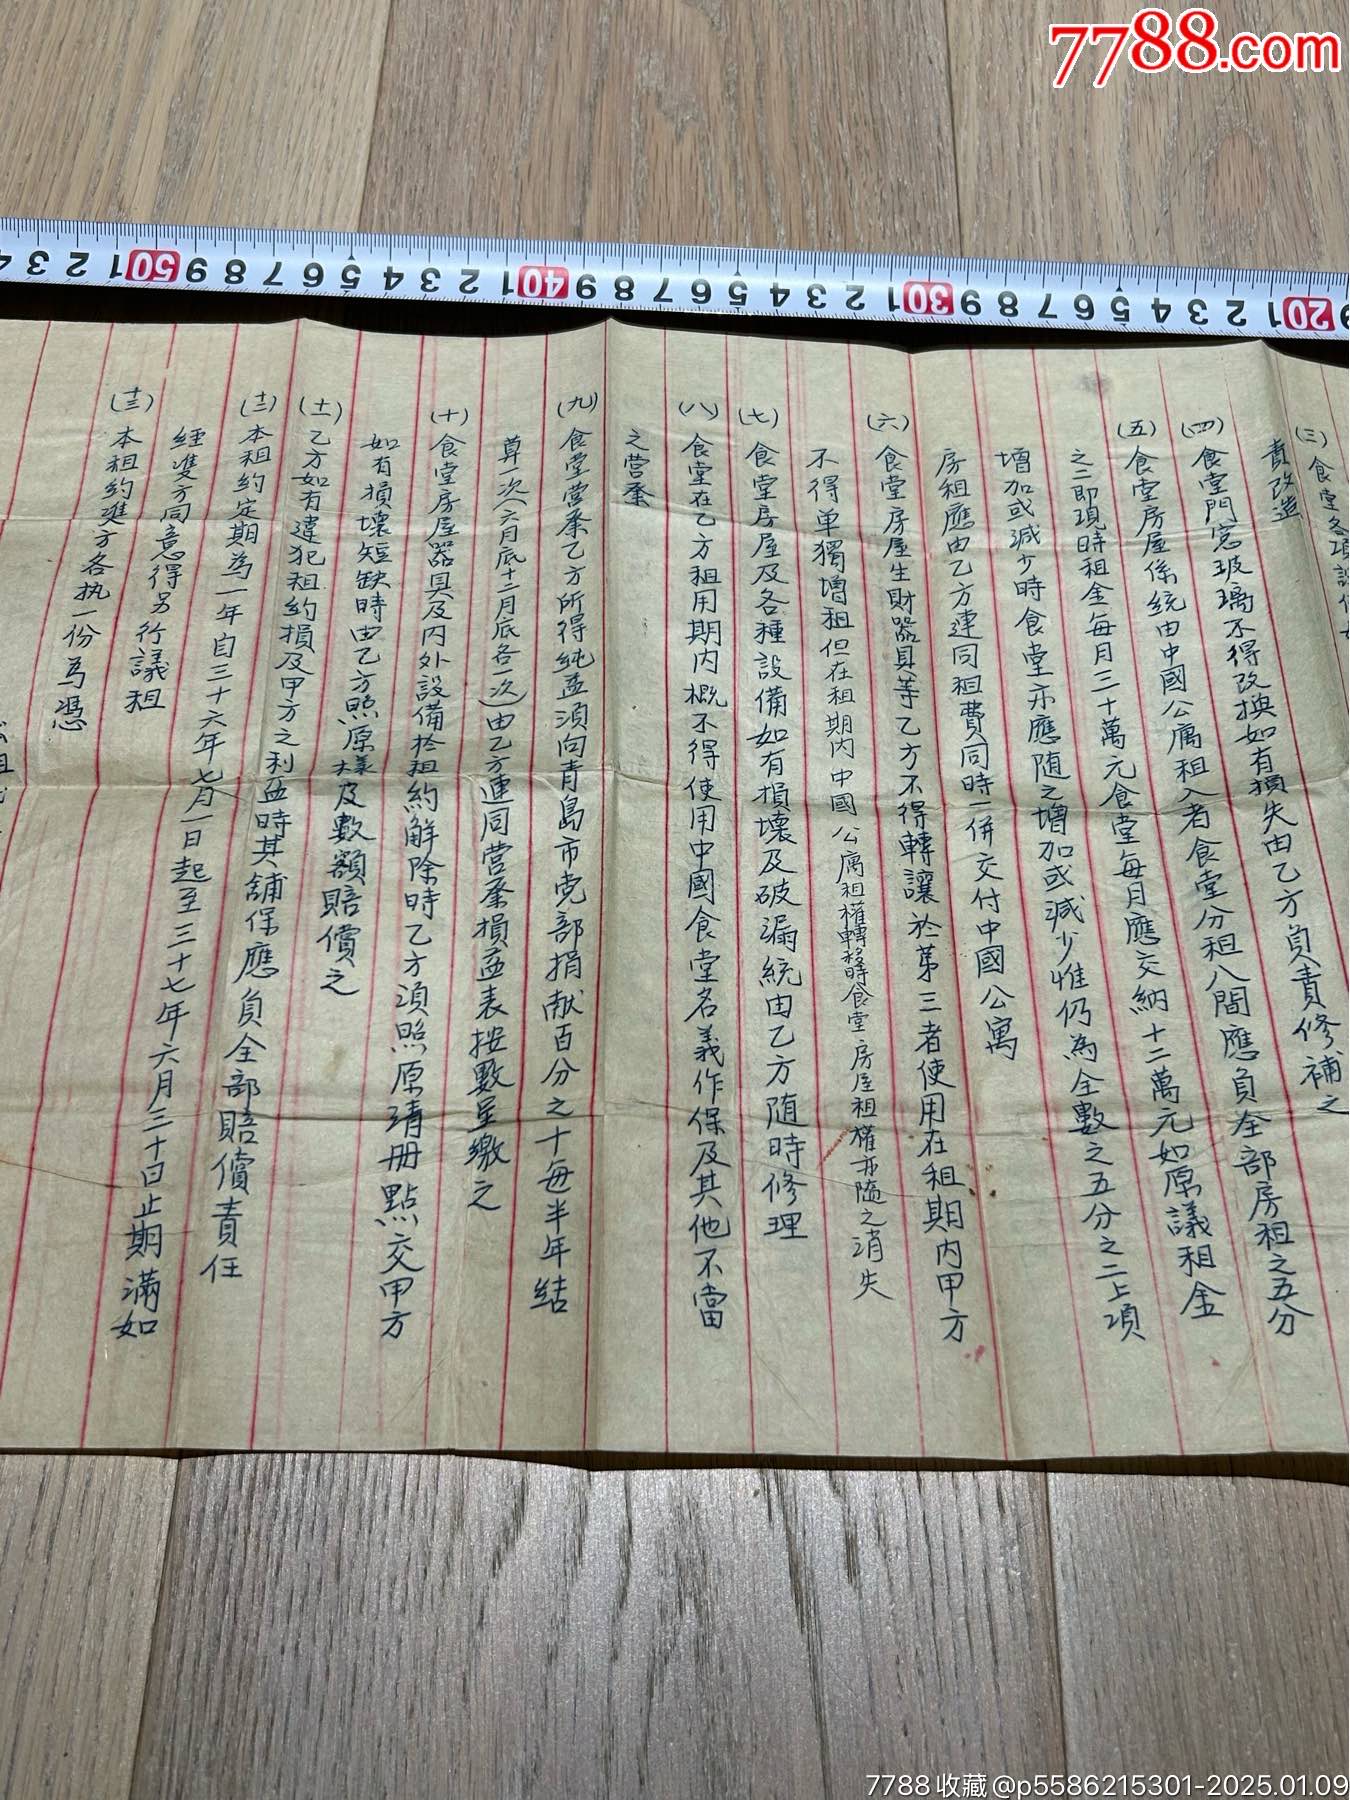 7788.com
4 3 2 1 50 9 8 7 6 5 4 3 2 1 40 9 8 7 6 5 4 3 2 1 30 9 8 7 6 5 4 3 2 1 20
(三)食堂各項設備
責改造
(四)食堂門窓玻璃不得改換如有損失由乙方負責修補之
(五)食堂房屋係統由中國公寓租入者食堂分租八間應負全部房租之五分
之二即現時租金每月三十萬元食堂每月應交納十二萬元如原議租金
增加或減少時食堂亦應随之增加或減少惟仍為全數之五分之二上項
房租應由乙方連同租費同時一併交付中國公寓
(六)食堂房屋生財器具等乙方不得轉讓於第三者使用在租期内甲方
不得单獨增租但在租期内中國公寓租權轉移時食堂房屋租權亦隨之消失
(七)食堂房屋及各種設備如有損壞及破漏統由乙方随時修理
(八)食堂在乙方租用期内概不得使用中國食堂名義作保及其他不當
之营業
(九)食堂营業乙方所得純益須向青島市党部捐献百分之十每半年結
算一次(六月底十二月底各一次)由乙方連同营業損益表按數呈繳之
(十)食堂房屋器具及内外設備於租約解除時乙方須照原清册點交甲方
如有損壞短缺時由乙方照原樣及數額賠償之
(十一)乙方如有違犯租約損及甲方之利益時其舖保應負全部賠償責任
(十二)本租約定期為一年自三十六年七月一日起至三十七年六月三十日止期滿如
經雙方同意得另行議租
(十三)本租約雙方各执一份為憑
7788收藏@p5586215301-2025.01.09